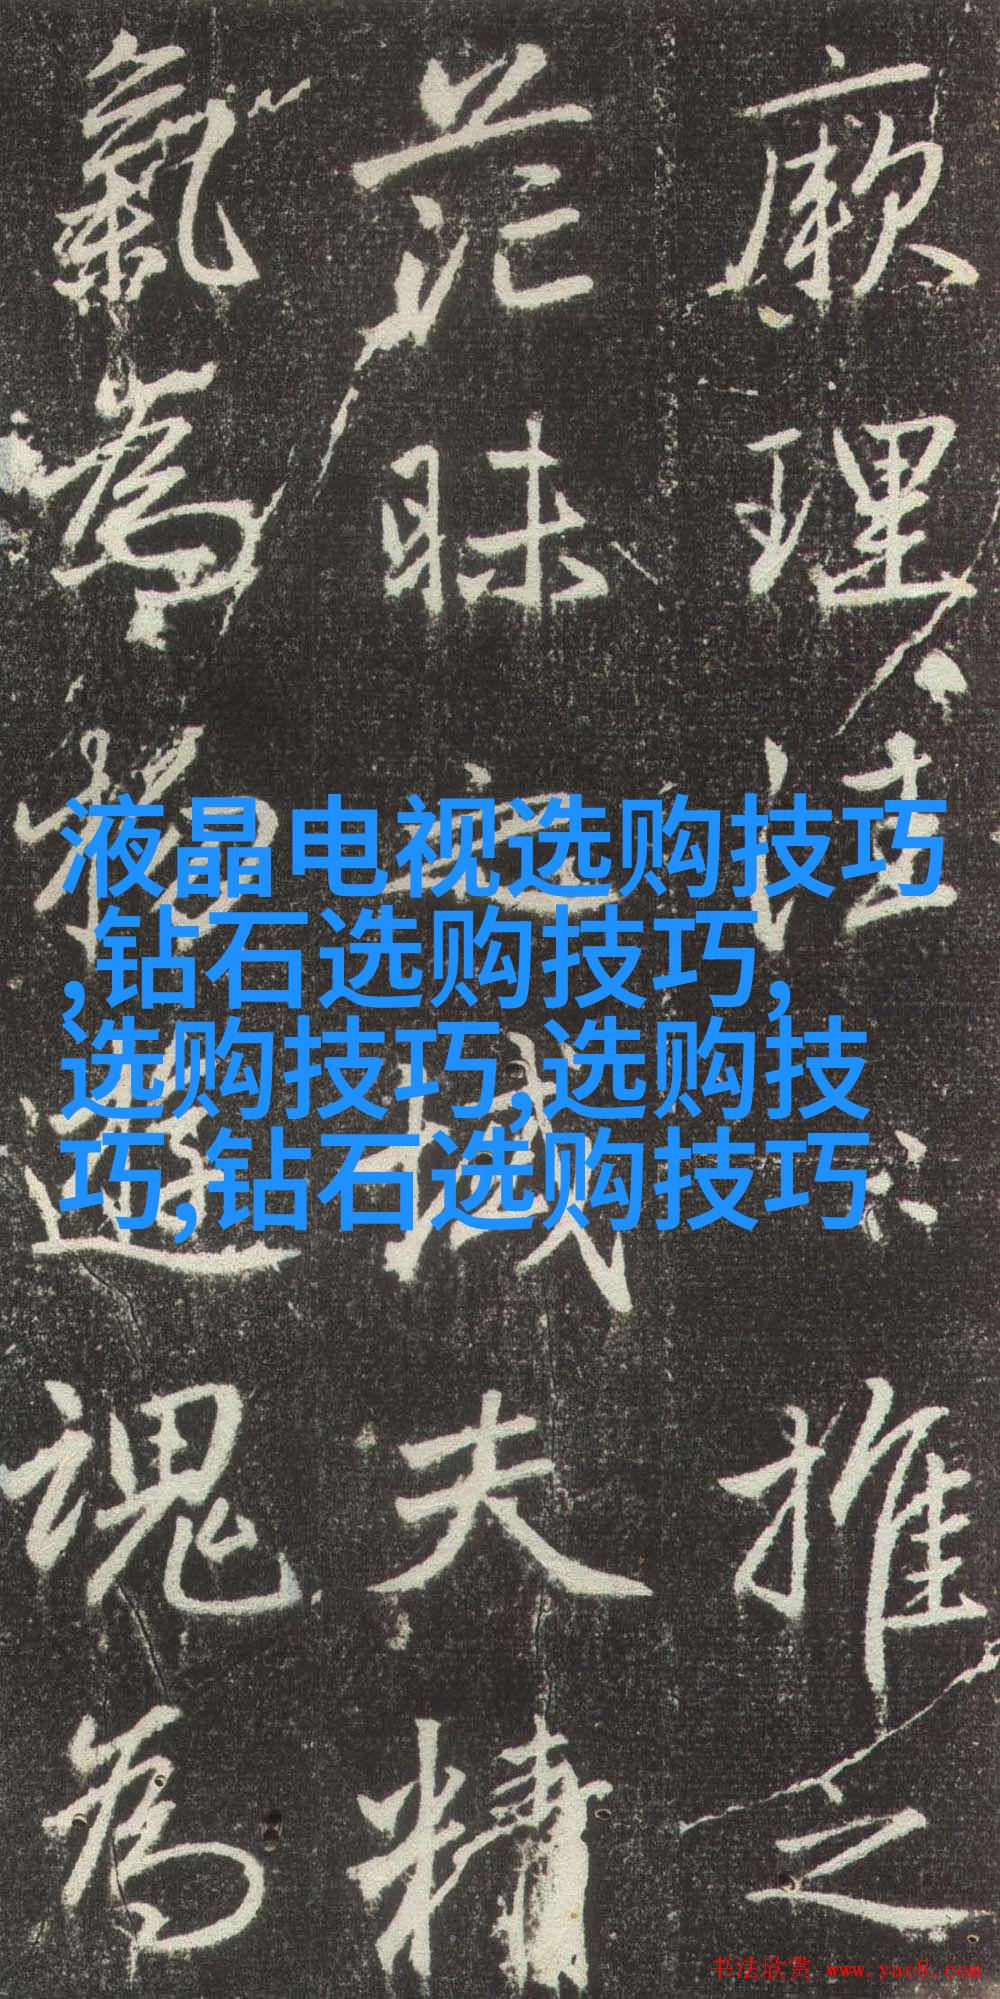 厥理推之
茫昧之域夫精
氣為物遊魂為
液晶电视选购技巧
,钻石选购技巧,
选购技巧,选购技
巧,钻石选购技巧
书法欣赏 www.yac8.com